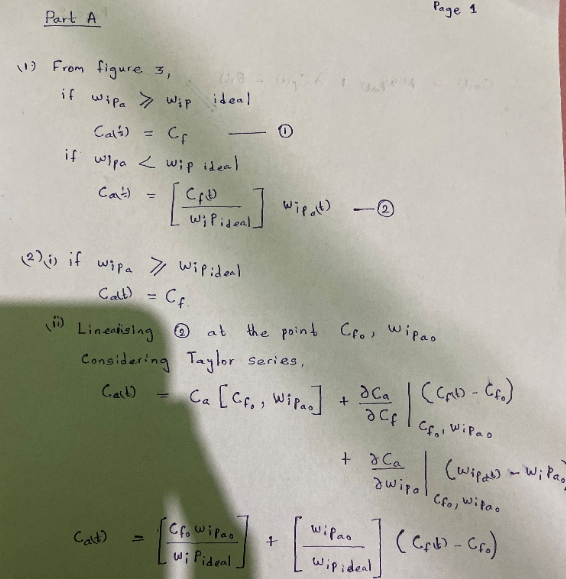 Page 1
Part A
(1) From figure 3,
if wipa ⩾ wip ideal
Ca(t) = Cf —— ①
if wipa < wip ideal
Ca(t) = [Cf(t) / wipideal] wipa(t) —②
(2) i) if wipa ⩾ wipideal
Ca(t) = Cf
(ii) Linearising ② at the point Cfo, wipao
Considering Taylor series,
Ca(t) = Ca [Cfo, wipao] + ∂Ca/∂Cf |Cfo, wipao (Cf(t) - Cfo)
+ ∂Ca/∂wipa |Cfo, wipao (wipa(t) - wipao
Ca(t) = [Cfo wipao / wipideal] + [wipao / wipideal] (Cf(t) - Cfo)